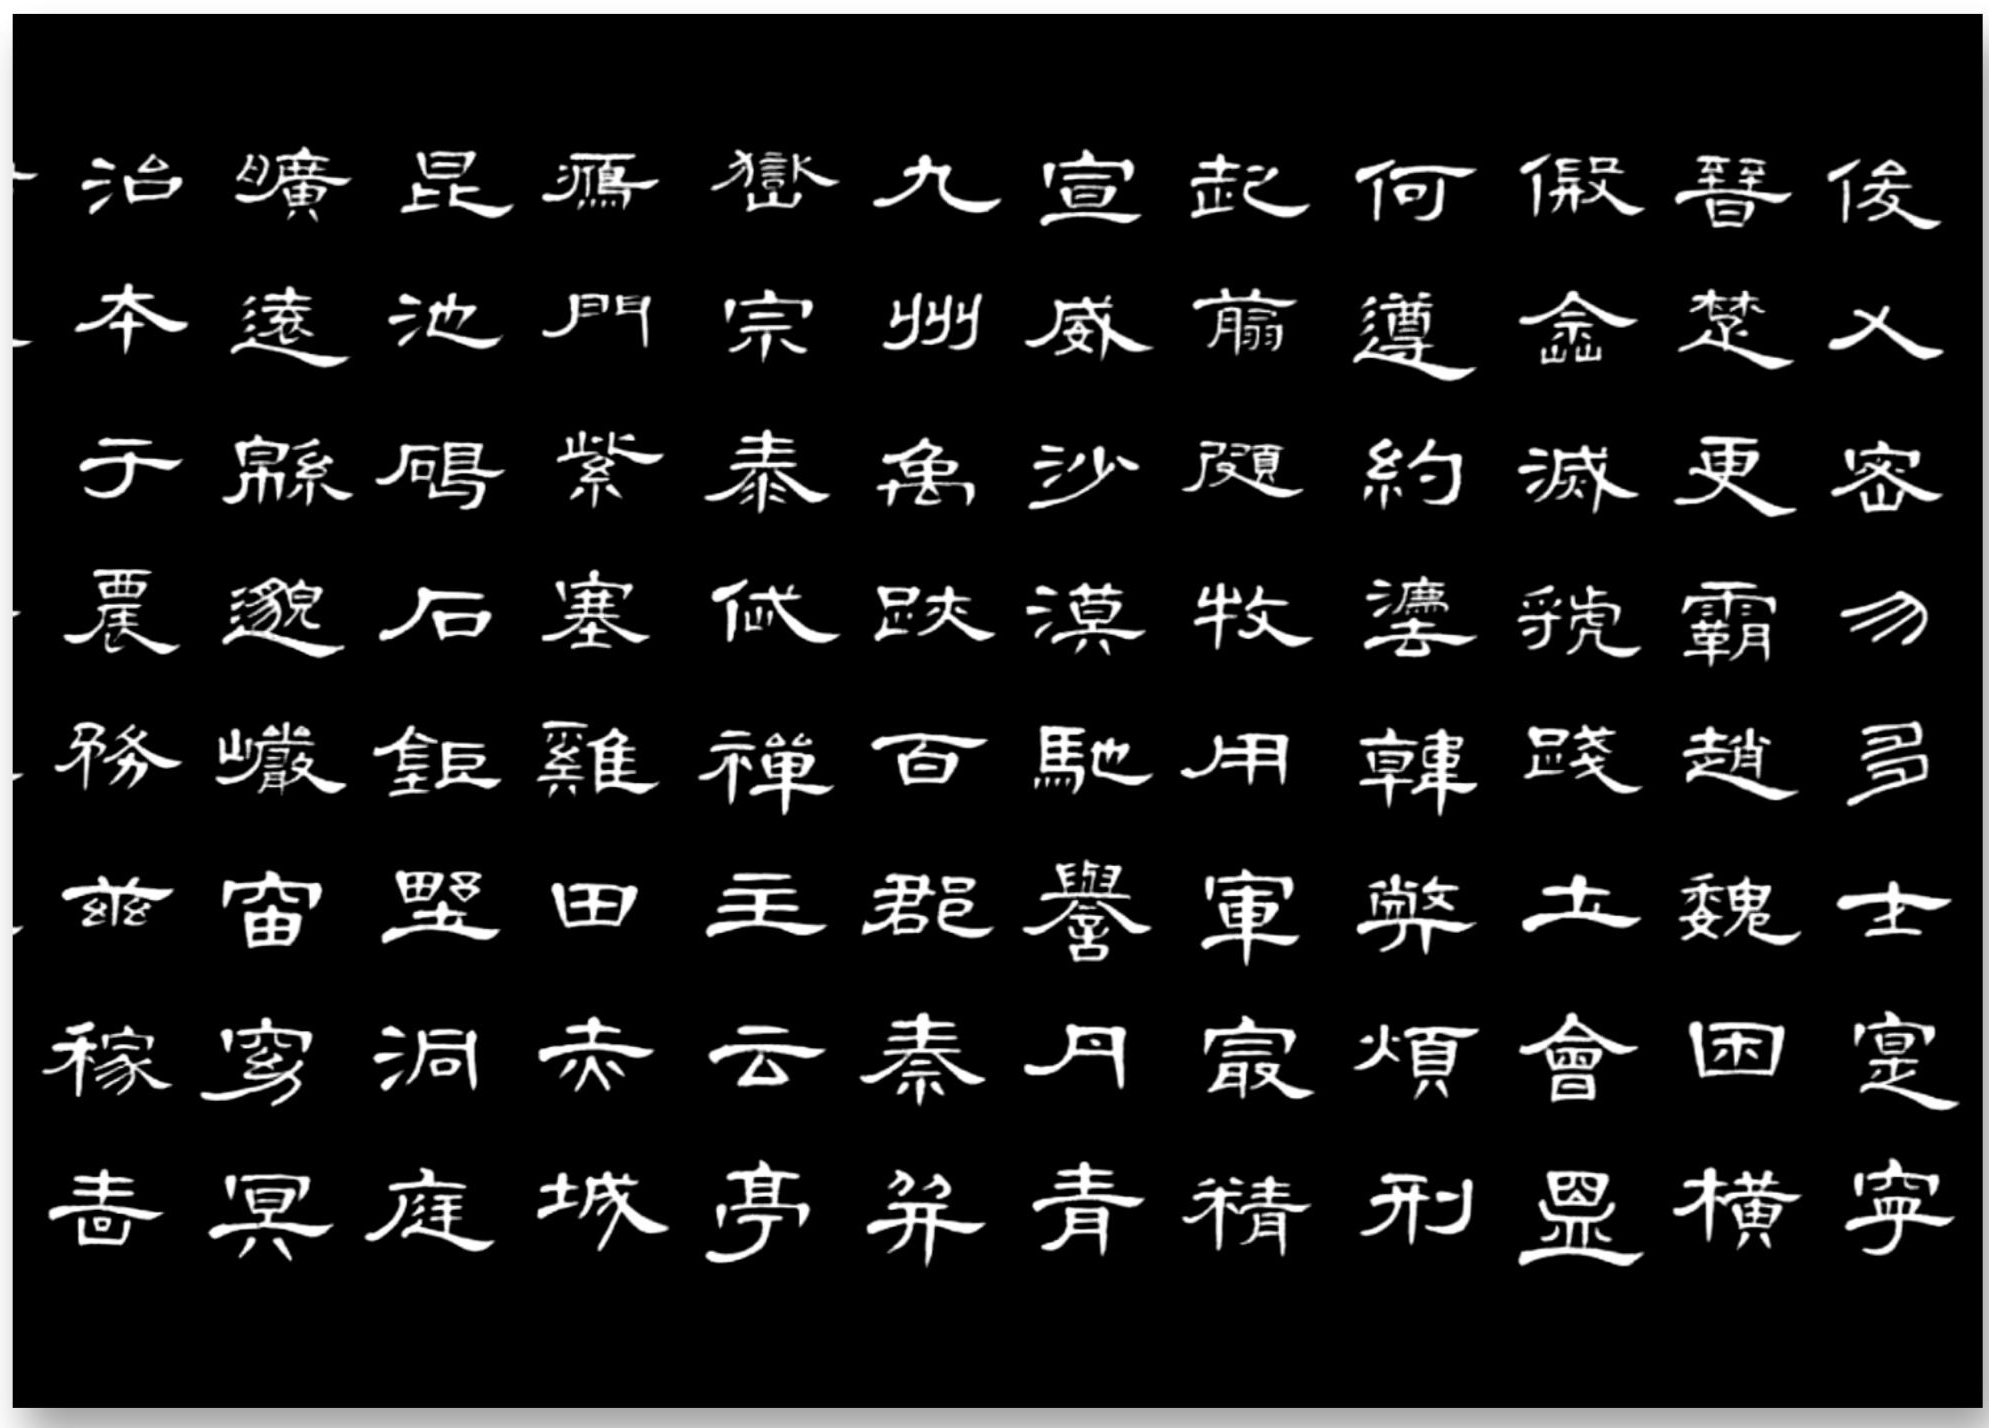 俊乂密勿多士寔寧
晉楚更霸趙魏困橫
假嵞滅虢踐土會盟
何遵約灋韓弊煩刑
起翦頗牧用軍㝡精
宣威沙漠馳譽丹青
九州禹跡百郡秦并
嶽宗泰岱禪主云亭
鴈門紫塞雞田赤城
昆池碣石鉅野洞庭
曠遠緜邈巗宙窈冥
治本于農務茲稼嗇